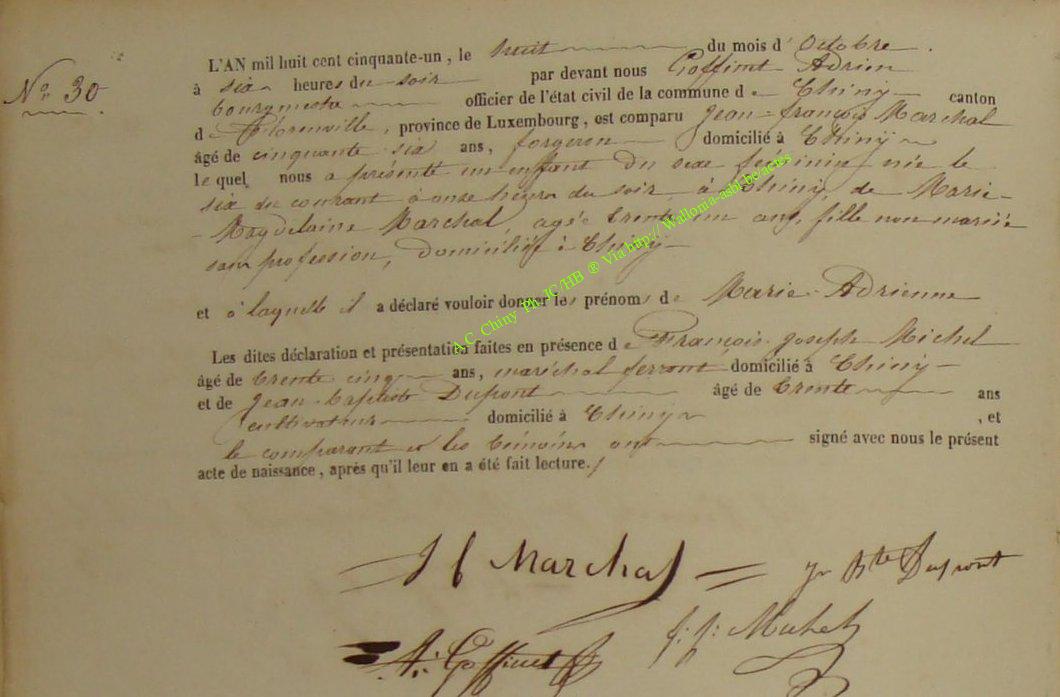 N° 30
L'AN mil huit cent cinquante-un, le huit du mois d'Octobre.
à six heures du soir par devant nous Goffinet Adrien
bourgmestre officier de l'état civil de la commune de Chiny canton
de Florenville, province de Luxembourg, est comparu Jean-françois Marchal
âgé de cinquante six ans, forgeron domicilié à Chiny
lequel nous a présenté un enfant du sexe féminin, née le
six du courant à onze heures du soir à Chiny, de Marie-
Magdelaine Marchal, agée trente un ans, fille non mariée
sans profession, domiciliée à Chiny
et à laquelle il a déclaré vouloir donner les prénoms de Marie-Adrienne
Les dites déclaration et présentation faites en présence de François-Joseph Michel
âgé de trente cinq ans, maréchal ferrant domicilié à Chiny
et de Jean-Baptiste Dupont âgé de trente ans
cultivateur domicilié à Chiny , et
le comparant et les témoins ont signé avec nous le présent
acte de naissance, après qu'il leur en a été fait lecture.
J f Marchal
Jn Bte Dupont
A: Goffinet
f: j: Michel
A.C. Chiny Ph. JC/HB ® Via http://Wallonia-asbl.be/actes